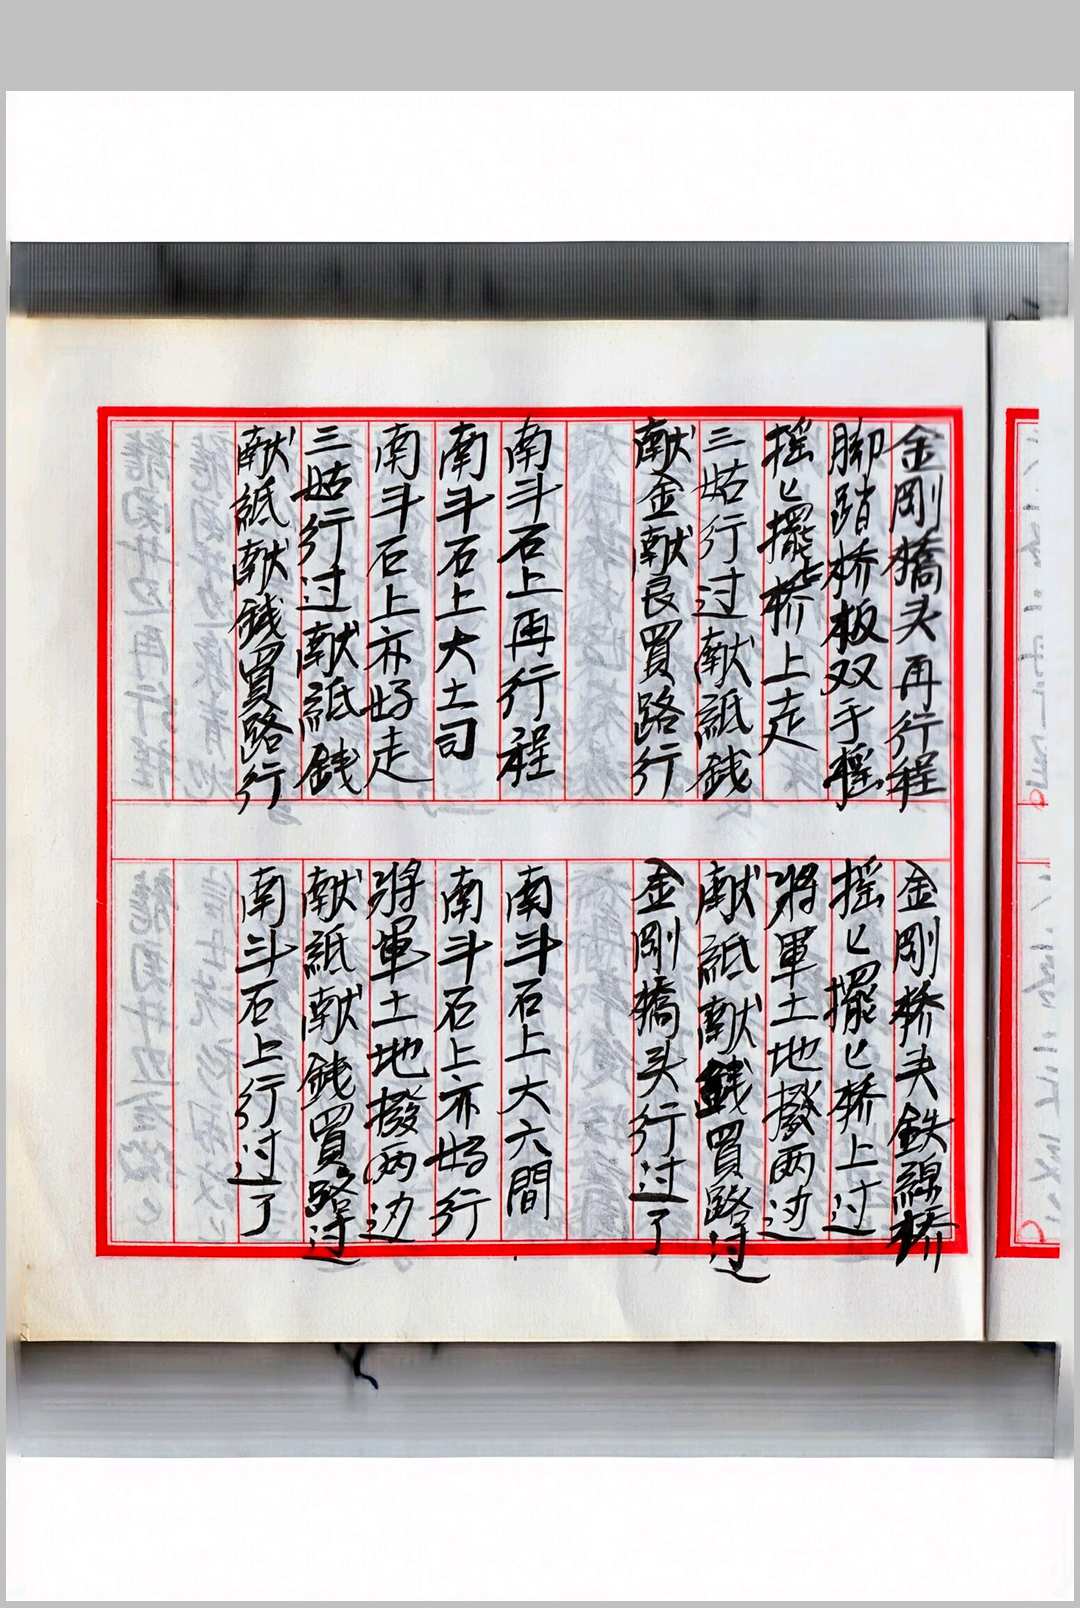 金剛橋头再行程
金剛桥头鉄線桥
脚踏桥板双手摇
摇匕擺匕桥上过
摇匕擺匕桥上走
將軍土地撥两边
三姑行过献紙銭
献紙献銭買路过
献金献艮買路行
金剛橋头行过了
南斗石上再行程
南斗石上大六間
南斗石上大土司
南斗石上亦好行
南斗石上亦好走
將軍土地撥两边
三姑行过献紙銭
献紙献銭買路过
献紙献銭買路行
南斗石上行过了